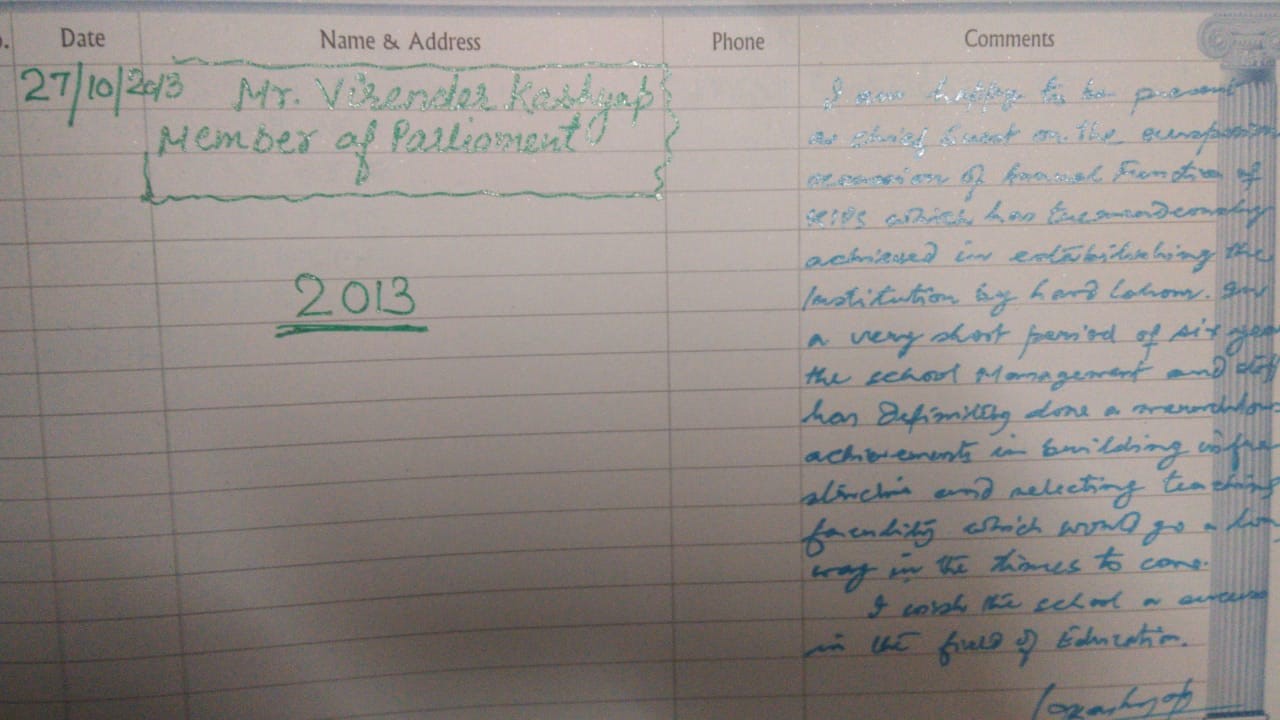 Date
Name & Address
Phone
Comments
27/10/2013
Mr. Virender Kashyap
Member of Parlioment
2013
I am happy to be present
as chief Guest on the
occasion of Annual Function of
which has
achieved in establishing the
Institution by hard labour. In
a very short period of six
the school Management and
has Definitely done a
achievements in building
and selecting teaching
which would go a
way in the times to come.
I wish the school a success
in the field of Education.